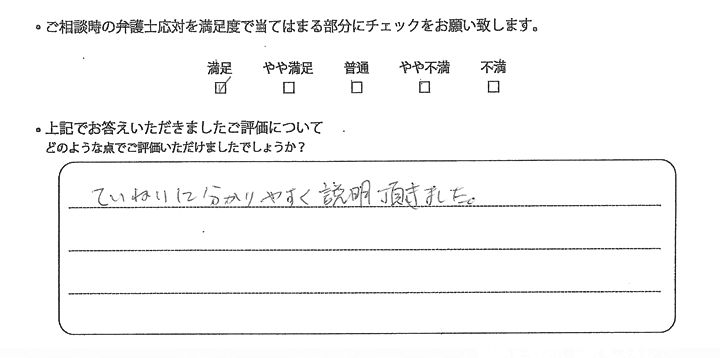 ・ご相談時の弁護士応対を満足度で当てはまる部分にチェックをお願い致します。
満足 やや満足 普通 やや不満 不満
☑ □ □ □ □
・上記でお答えいただきましたご評価について
どのような点でご評価いただけましたでしょうか？
ていねいに分かりやすく説明頂きました。